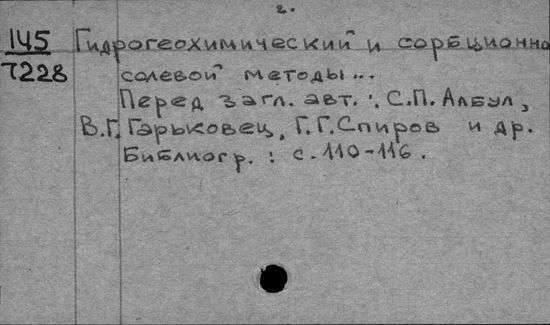 2.
145 Гидрогеохимический и сорбционно
7228 солевой методы...
Перед загл. авт.: С.П. Албул,
В.Г. Гарьковец, Г.Г. Спиров и др.
Библиогр.: с. 110-116.